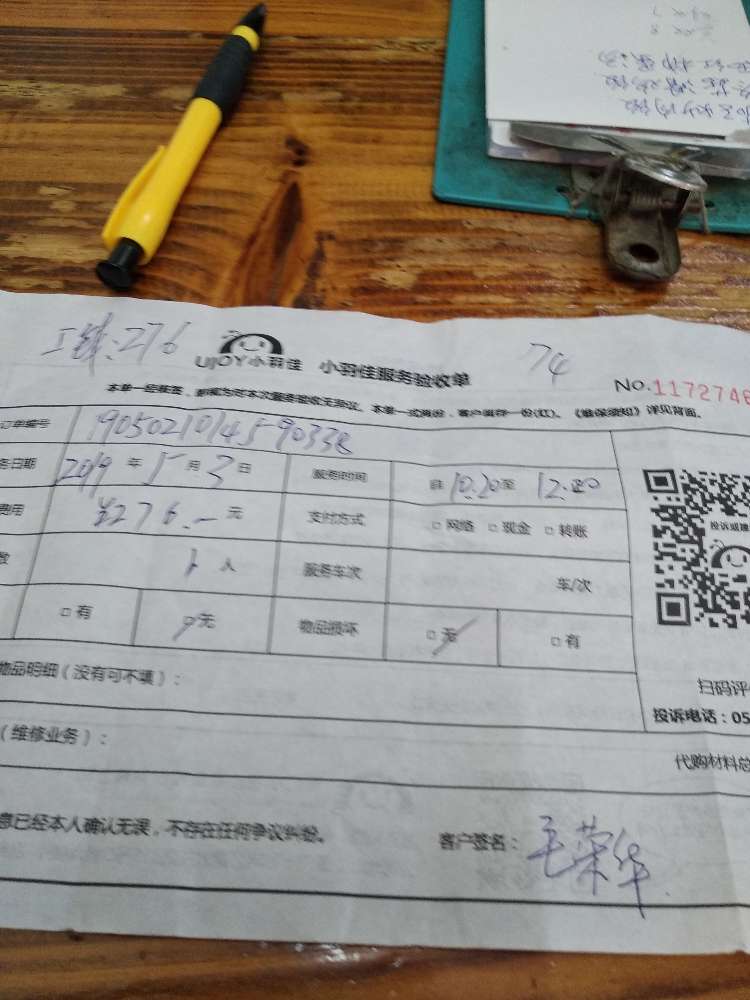 工钱:276
74
UJOY小羽佳 小羽佳服务验收单
NO.1172746
本单一经签签，即视为对本次服务验收无异议。本单一式两份，客户留存一份(红)。《维保须知》详见背面。
订单编号 190502101459033
务日期 2019 年 5 月 3 日 服务时间 自 10.20 至 12.20
费用 ¥276.— 元 支付方式 □ 网络 □ 现金 □ 转账
数 1 人 服务车次 车/次
□ 有 □ 无 物品损坏 □ 无 □ 有
投诉或建
扫码评
投诉电话：05
物品明细（没有可不填）：
（维修业务）：
代购材料总
息已经本人确认无误，不存在任何争议纠纷。
客户签名：毛荣华